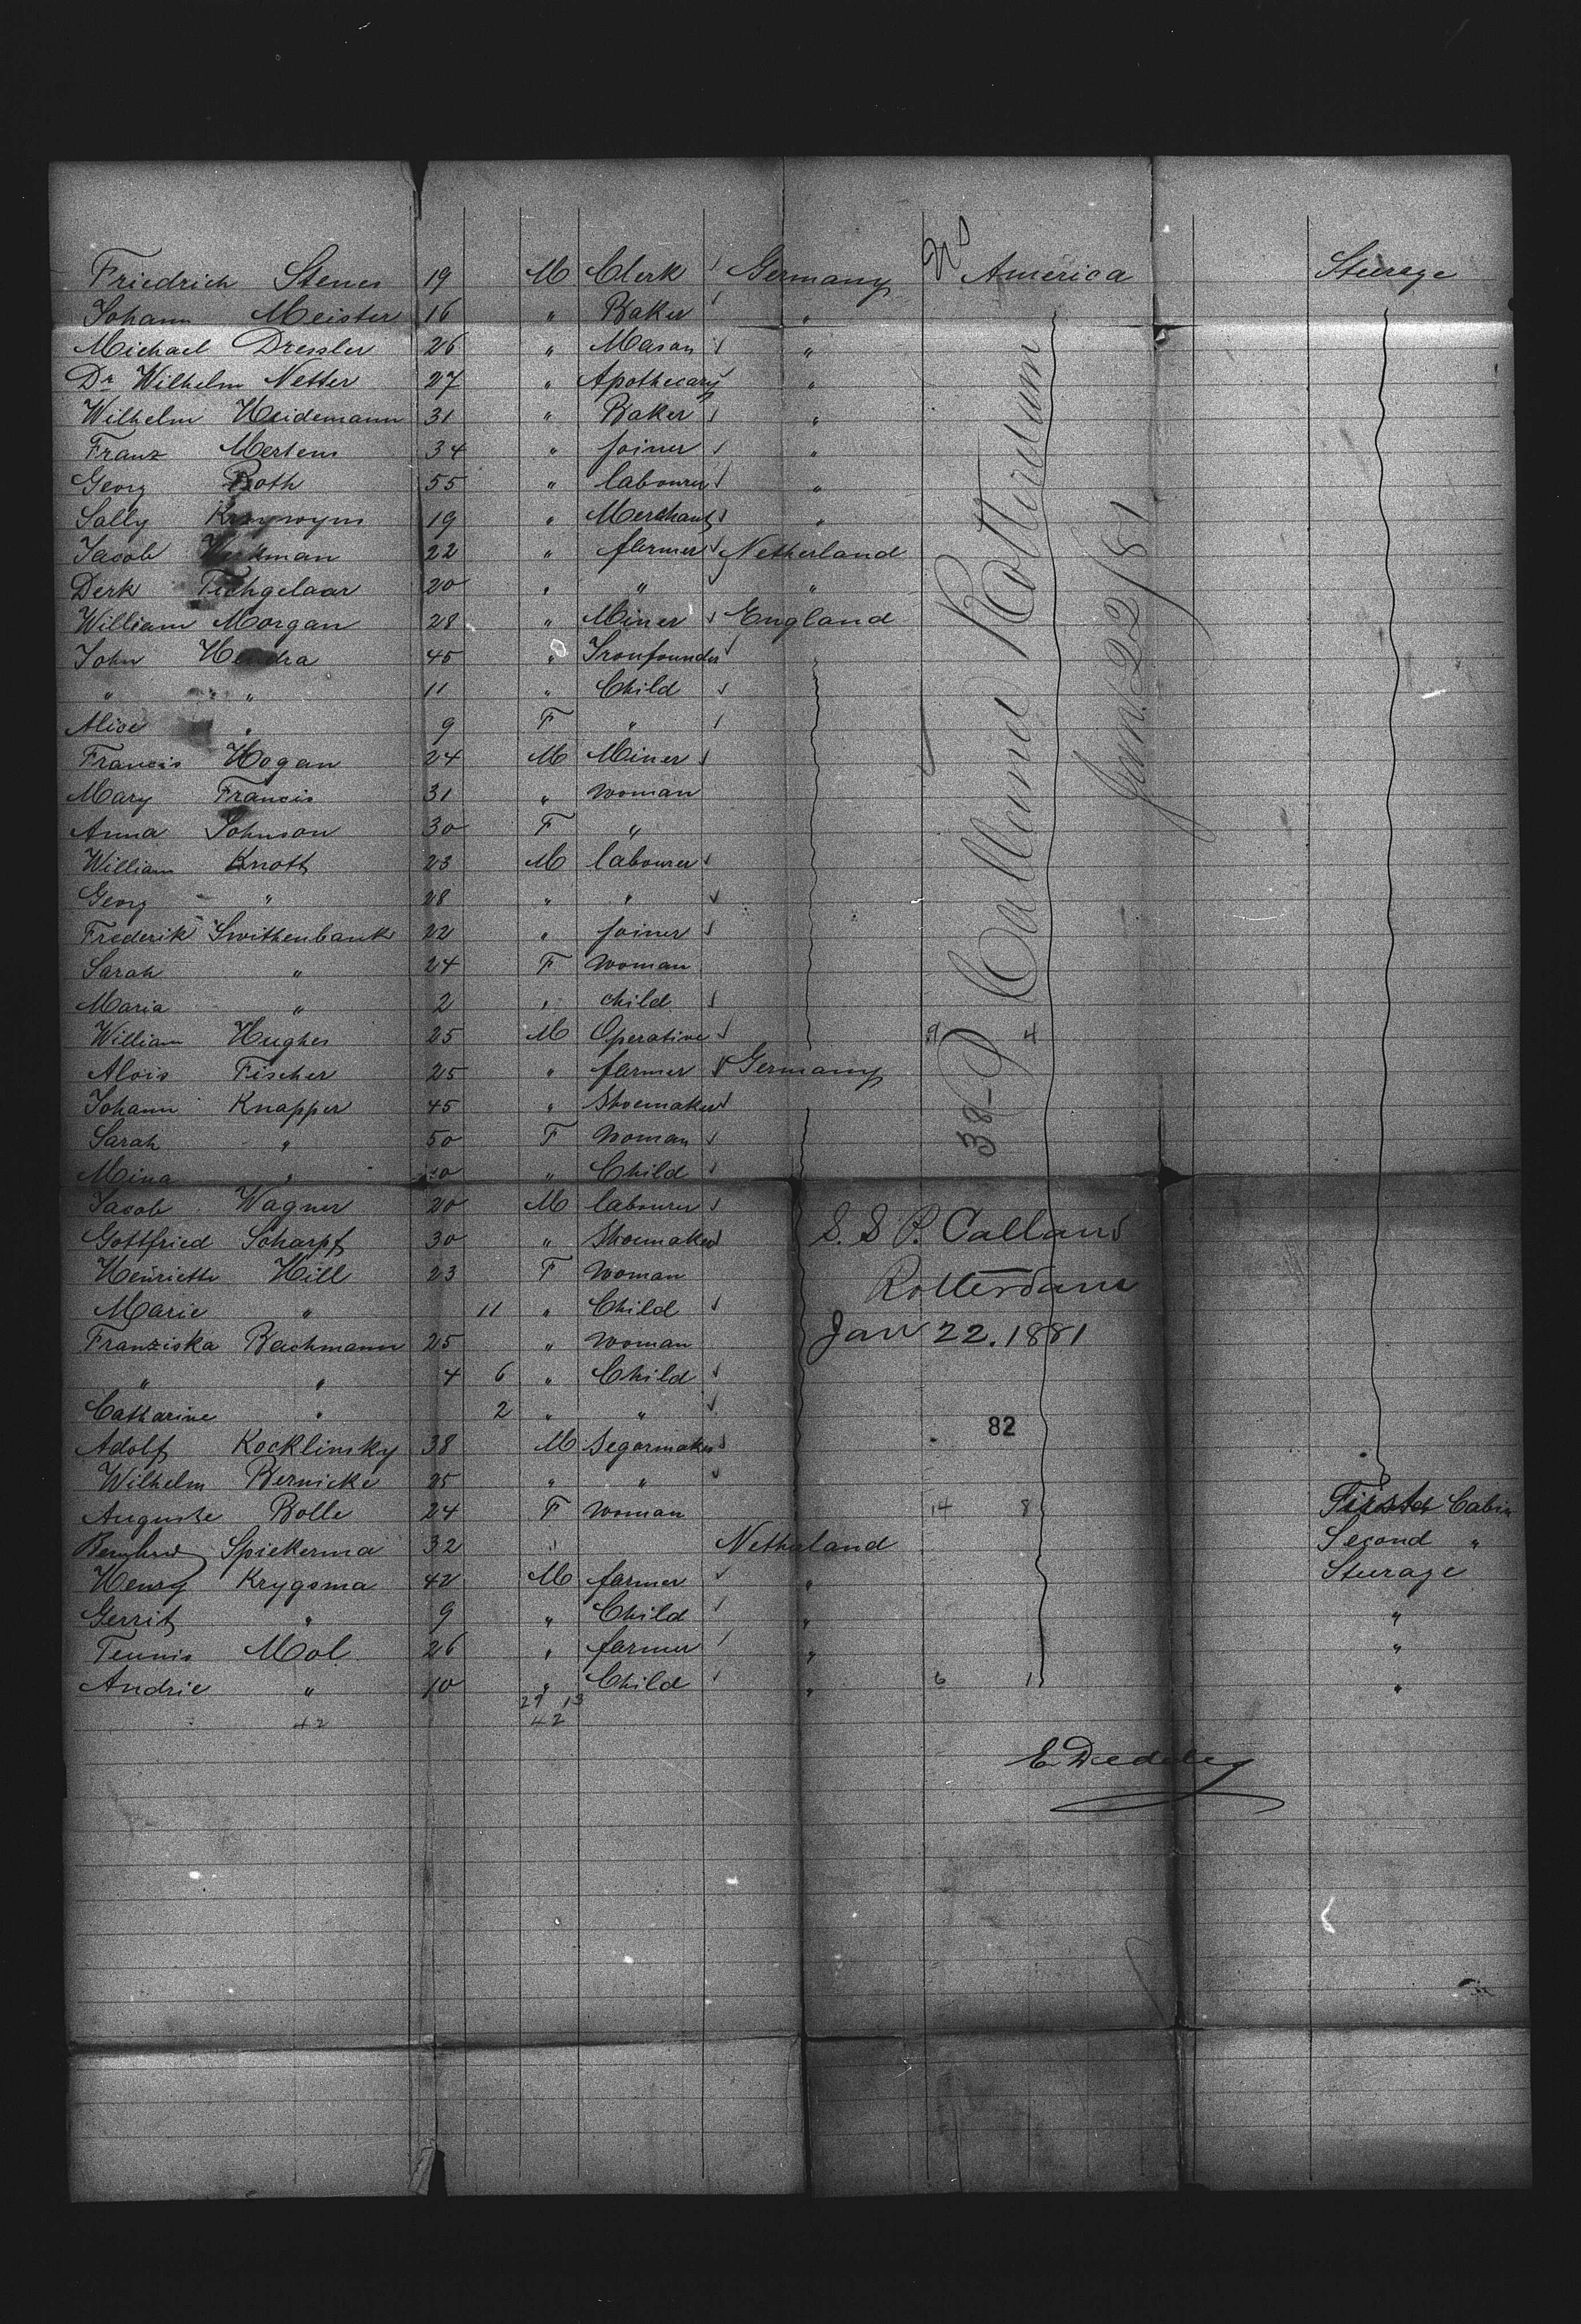 Friedrich Stenes 19 M Clerk Germany US America Steerage
Johann Meister 16 " Baker "
Michael Dressler 26 " Mason "
Dr Wilhelm Netter 27 " Apothecary "
Wilhelm Heidemann 31 " Baker "
Franz Mertens 34 " joiner "
Georg Roth 55 " labourer "
Sally 19 " Merchant "
Jacob 22 " farmer Netherland
Derk Tichgelaar 20 " " "
William Morgan 28 " Miner England
John Hendra 45 " Ironfounder
" " 11 " Child
Alice " 9 F "
Francis Hogan 24 M Miner
Mary Francis 31 " woman
Anna Johnson 30 F "
William Knott 23 M labourer
Georg " 28 " "
Frederik Swithenbank 22 " joiner
Sarah " 24 F woman
Maria " 2 " child
William Hughes 25 M Operative 9 4
Alois Fischer 25 " farmer Germany
Johann Knapper 45 " Shoemaker
Sarah " 50 F Woman
Mina " 10 " Child
Jacob Wagner 20 M labourer
Gottfried Scharpf 30 " Shoemaker
Henriette Hill 23 F Woman
Marie " 11 " Child
Franziska Bachmann 25 " woman
" " 4 6 " Child
Catharine " 2 " "
Adolf Kocklinsky 38 M Segarmaker
Wilhelm Bernicke 25 " "
Auguste Bolle 24 F woman 14 8 First Cabin
Spiekerma 32 " Netherland Second "
Henry Krygsma 42 M farmer " Steerage
Gerrit " 9 " Child " "
Teunis Mol 26 " farmer " "
Andrie " 10 " Child " 6 1 "
29 13
42 42
38 P Calland Rotterdam
Jan. 22/81
S. S P. Calland
Rotterdam
Jan 22. 1881
82